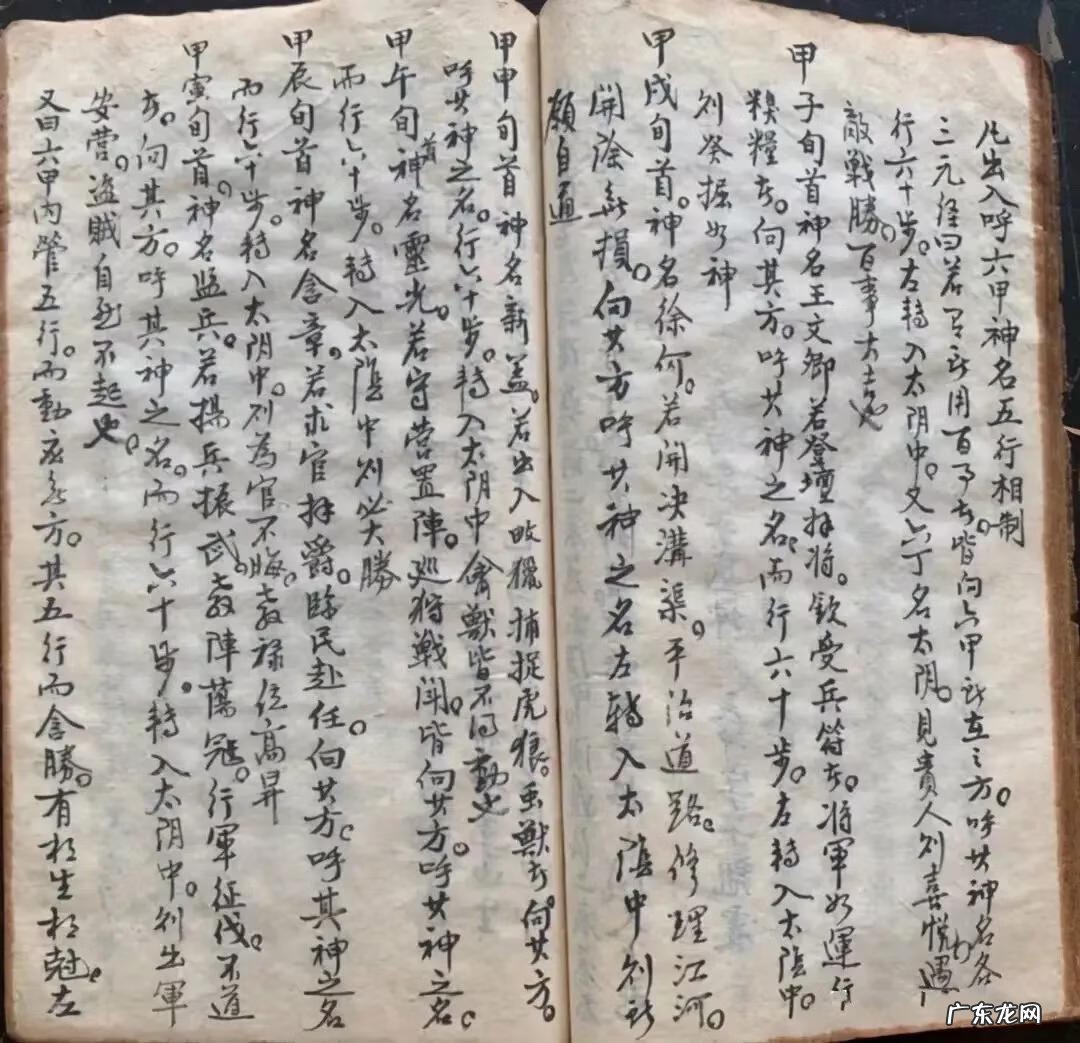 凡出入呼六甲神名五行相制
三元经曰若有所用百事者。皆向六甲所在之方。呼其神名各
行六十步。左转入太阴中。又六丁名太阴。见贵人则喜悦遇
敵戦勝。百事大吉也
甲子旬首神名王文卿若登壇拜将。钦受兵符者。将軍如運行
糗糧者。向其方。呼其神之名。而行六十步。左轉入太陰中。
则發掘如神
甲戌旬首。神名徐何。若開决溝渠。平治道路。修理江河。
開除無損。向其方呼其神之名左轉入太陰中则所
願自通
甲申旬首神名新盖。若出入畋獵捕捉虎狼。虫獸者。向其方。
呼其神之名。行六十步。轉入太阴中禽獸皆不得動也
甲午旬首神名靈光。若守营置陣。巡狩戦闘。皆向其方。呼其神之名。
而行六十步。轉入太陰中则必大勝
甲辰旬首神名含章。若求官拜爵。臨民赴任。向其方。呼其神之名
而行六十步。轉入太阴中。则為官不晦。禄位高昇
甲寅旬首。神名监兵。若揚兵振武。陣蕩冦。行軍征伐。不道
者。向其方。呼其神之名。而行六十步。轉入太阴中。则出軍
安营。盗贼自然不起也。
又曰六甲内管五行。而動應方。其五行而含勝。有相生相尅左
广东龙网